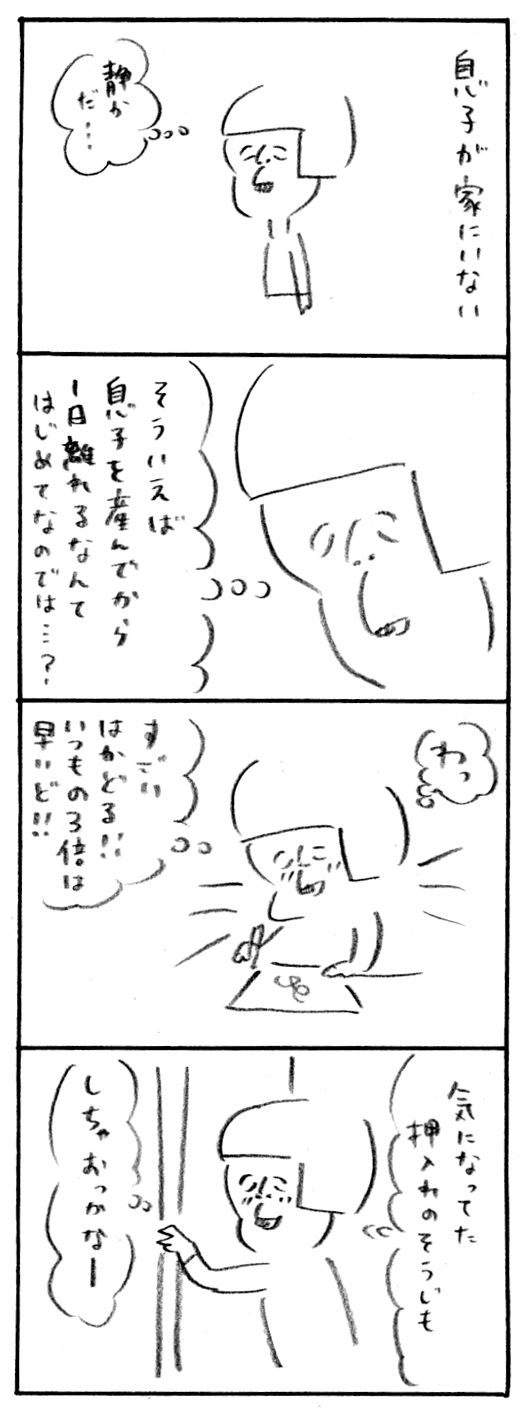 息子が家にいない
静か
だ…
そういえば
息子を産んでから
1日離れるなんて
はじめてなのでは…?
わっ
すごい
はかどる!!
いつもの3倍は
早いど!!
気になってた
押入れのそうじも
しちゃおっかなー